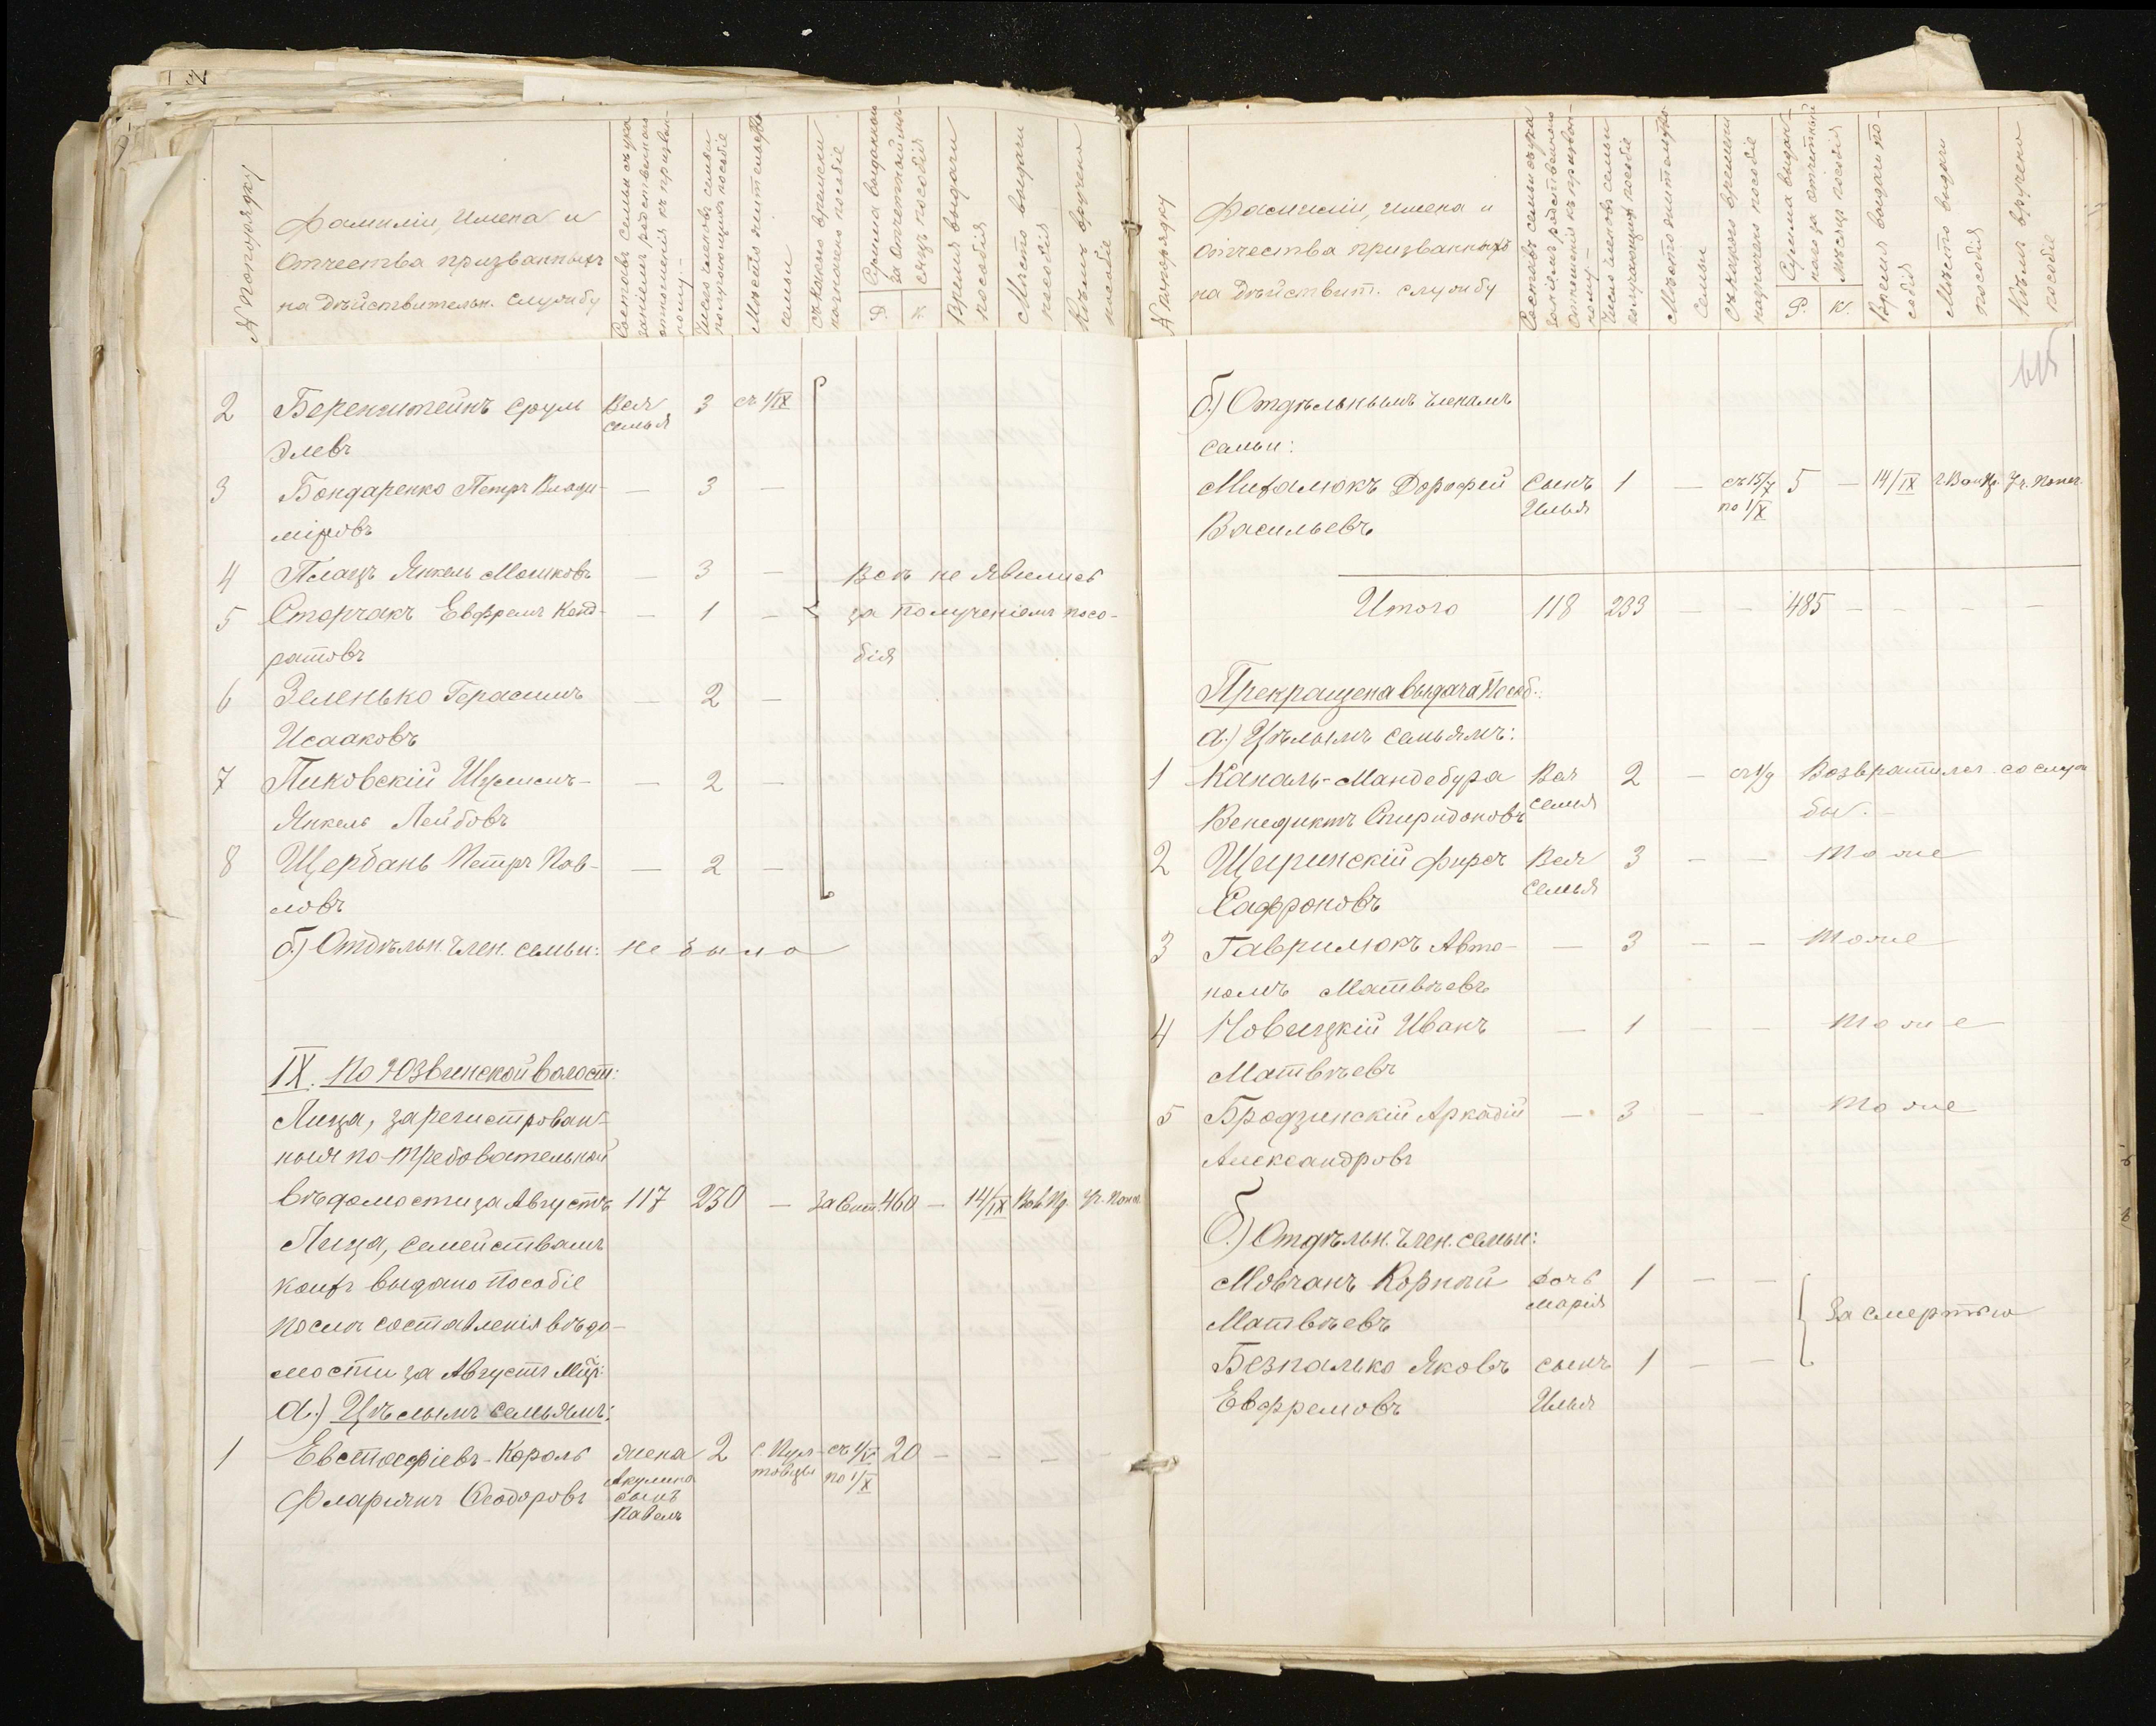 № по порядку
Фамиліи, имена и
отчества призванныхъ
на дѣйствительн. службу
Составъ семьи съ ука
заніемъ родственнаго
отношенія къ призван-
ному.-
Число членовъ семьи
получающихъ пособіе
Мѣсто жительства
семьи
Съ какого времени
назначено пособіе
Сумма выданнаго
за отчетный мѣ-
сяцъ пособія
Р. К.
Время выдачи
пособія
Мѣсто выдачи
пособія
Кѣмъ вручено
пособіе
2 Беренштейнъ Сруль Вся 3 съ 1/IX
семья
Элевъ
3 Бондаренко Петръ Влади- — 3 —
міровъ
4 Плацъ Янкель Мошковъ — 3 — Всѣ не явились
5 Сторчакъ ЕвфремъКонд- — 1 — за полученіемъ посо-
ратовъ бія
6 Зеленько Герасимъ — 2 —
Исааковъ
7 Пиковскій Шулимъ- — 2 —
Янкель Лейбовъ
8 Щербань Петръ Пав- — 2 —
ловъ
б.) Отдѣльн. член. семьи: не было
IX. По Юзвинской волости:
Лица, зарегистрован-
ныя по требовательной
вѣдомости за Августъ 117 230 — За Сент. 460 — 14/IX Вол. Пр. Уч. Попеч.
Лица, семействамъ
коихъ выдано пособіе
послѣ составленія вѣдо-
мости за Августъ м-цъ:
а.) Цѣлымъ семьямъ:
1 Евстафіевъ-Король жена 2 съ 1/IX 20 — — —
Акулина по 1/X
Фларіянъ Ѳеодоровъ сынъ
Павелъ
№ по порядку
Фамиліи, имена и
отчества призванныхъ
на дѣйствит. службу
Составъ семьи съ ука
заніемъ родственнаго
отношенія къ призван-
ному.-
Число членовъ семьи
получающихъ пособіе
Мѣсто жительства
семьи
Съ какого времени
назначено пособіе
Сумма выдан-
наго за отчетный
мѣсяцъ пособія
Р. К.
Время выдачи по-
собія
Мѣсто выдачи
пособія
Кѣмъ вручено
пособіе
б.) Отдѣльнымъ членамъ
семьи:
Михалюкъ Дорофей сынъ 1 — 5 — 14/IX Вол. Пр. Уч. Попеч.
Илья по 1/X
Васильевъ
Итого 118 233 — — 485 — — — —
Прекращена выдача Пособ.:
а.) Цѣлымъ семьямъ:
1 Каналъ-Мандебура Вся 2 — съ 1/9 Возвратился со служ
семья бы.-
Венедиктъ Спиридоновъ
2 Щиринскій Фирсъ Вся 3 — — тоже
семья
Сафроновъ
3 Гаврилюкъ Авто- — 3 — — тоже
номъ Матвѣевъ
4 Новицкій Иванъ — 1 — — тоже
Матвѣевъ
5 Бродзинскій Аркадій — 3 — — тоже
Александровъ
б.) Отдѣльн. член. семьи:
Мовчанъ Корній дочь 1 — —
Марія За смертью
Матвѣевъ
Безпалько Яковъ сынъ 1 — —
Евфремовъ Илья